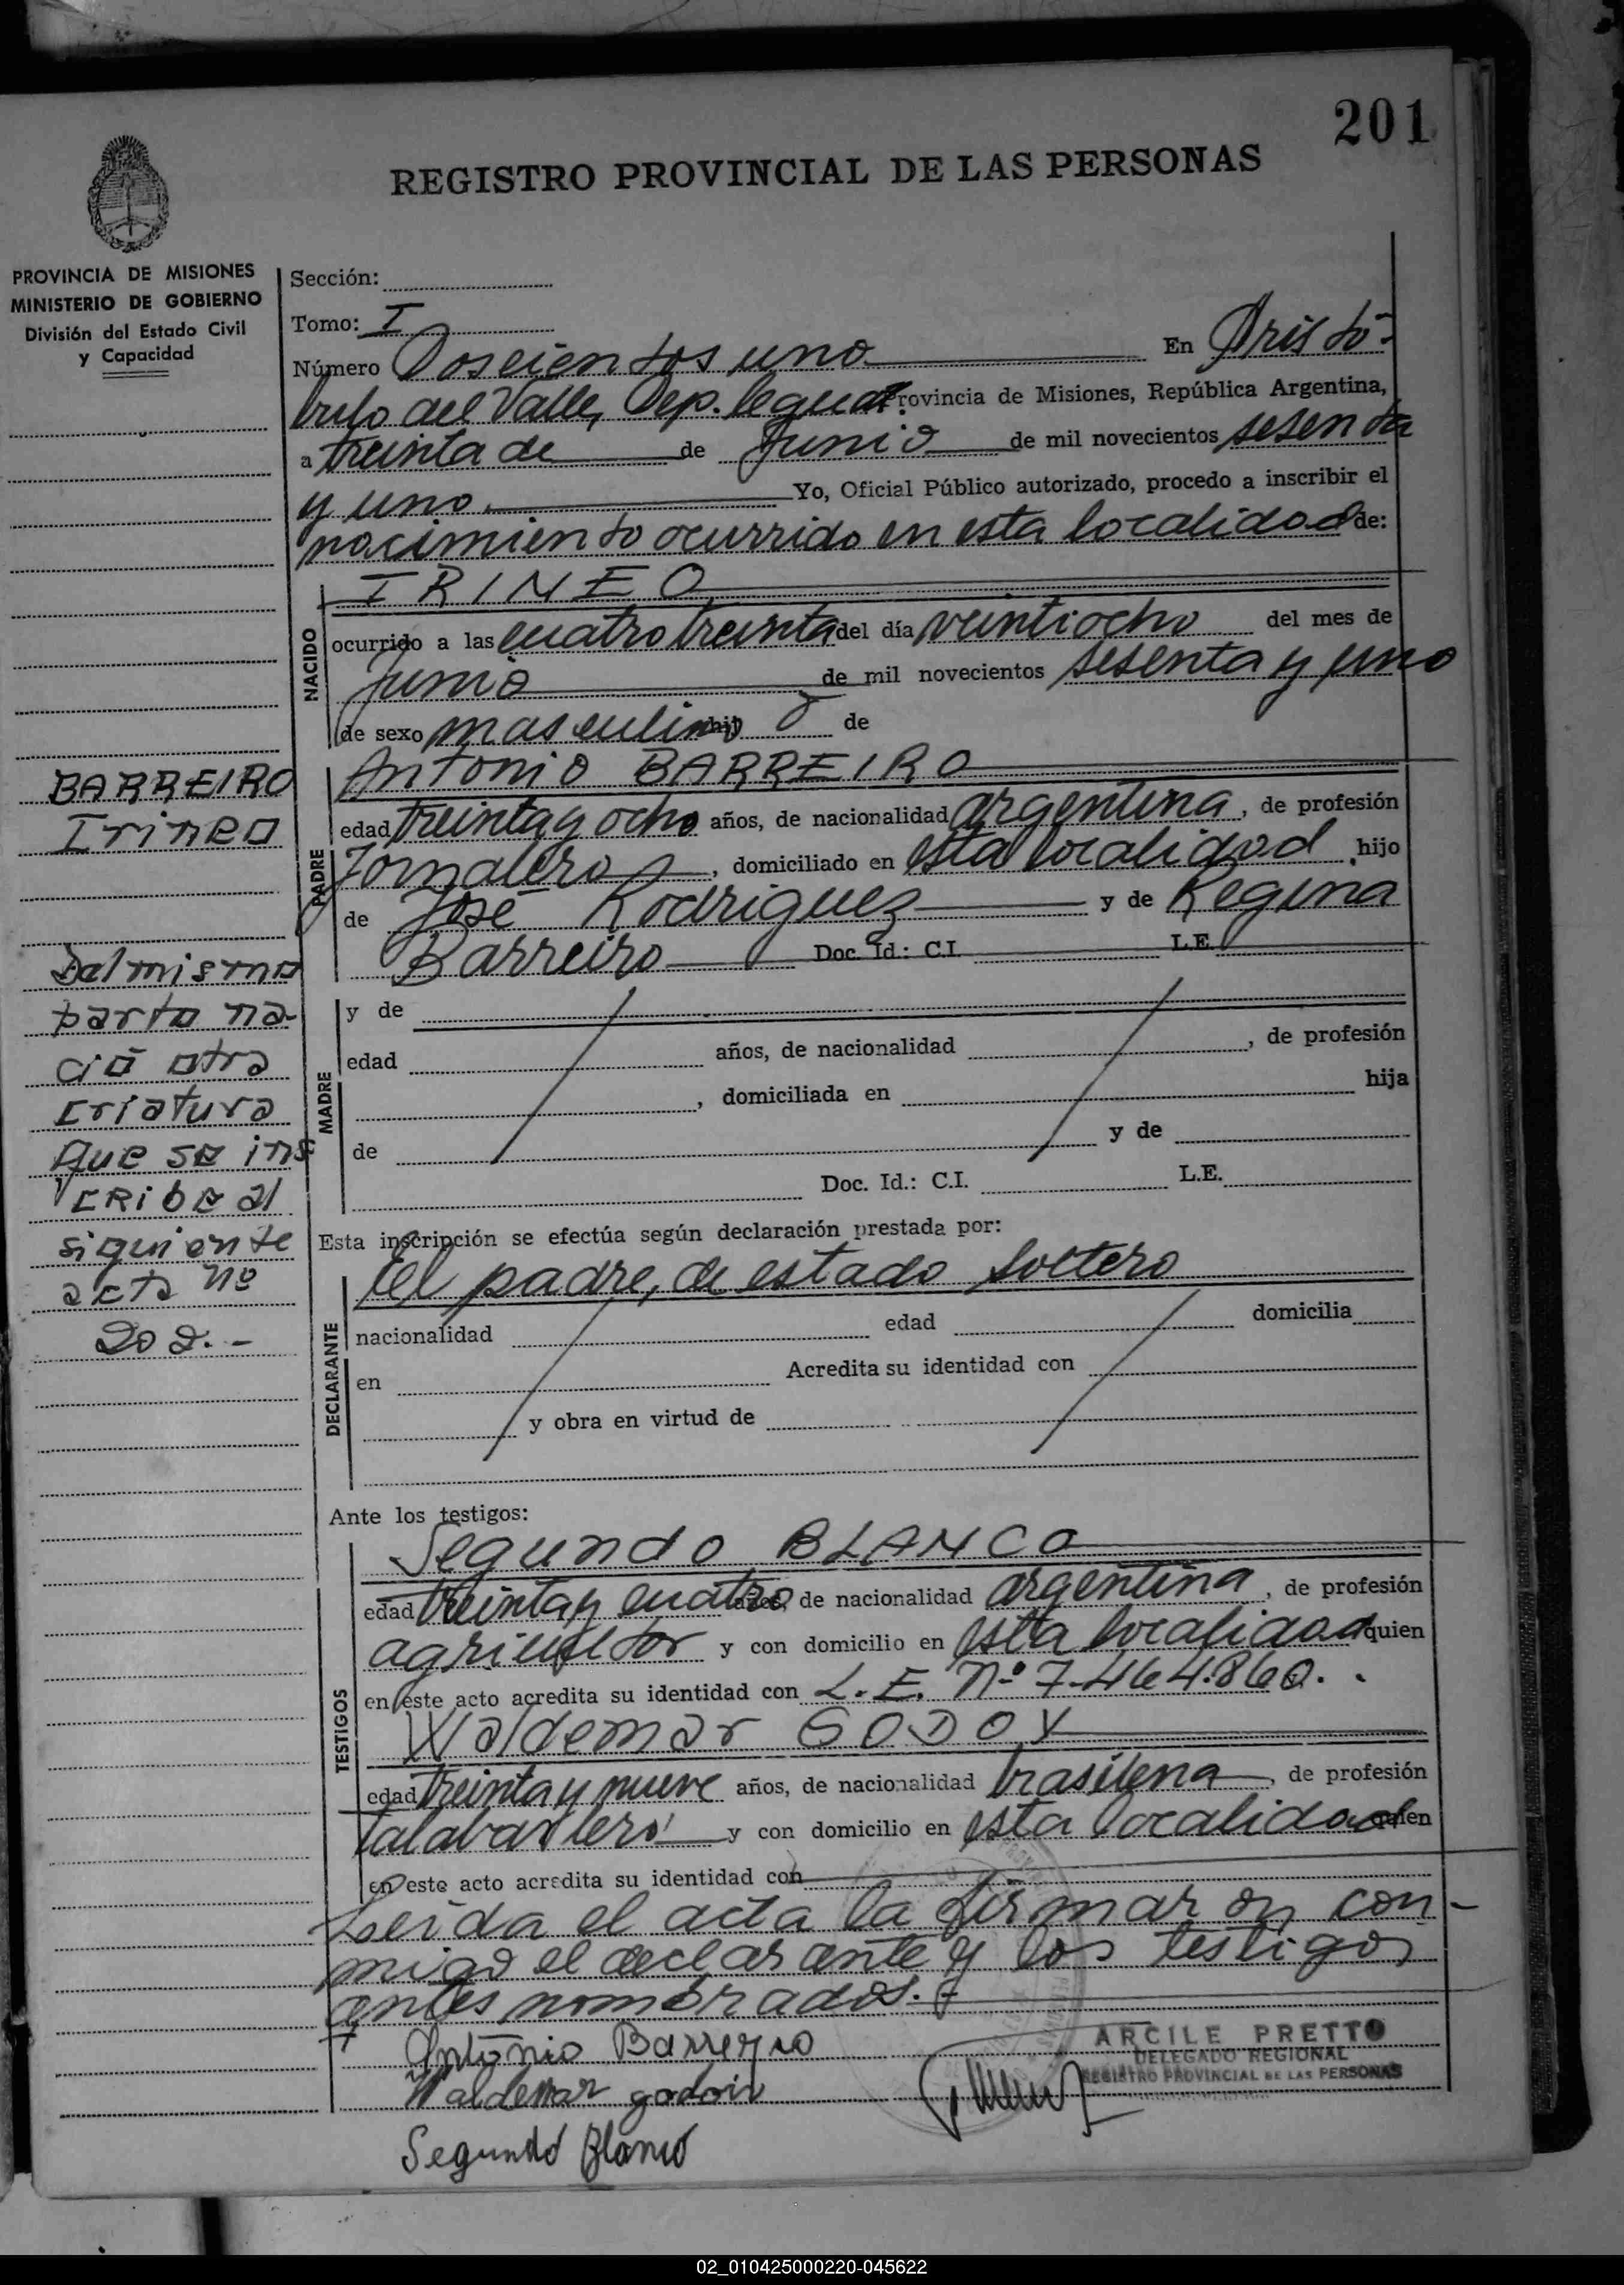 201
REGISTRO PROVINCIAL DE LAS PERSONAS
PROVINCIA DE MISIONES
MINISTERIO DE GOBIERNO
División del Estado Civil
y Capacidad
Sección:
Tomo: I
Número Doscientos uno En Aristó-
bulo del Valle, Dep. Provincia de Misiones, República Argentina,
a treinta de de Junio de mil novecientos sesenta
y uno. Yo, Oficial Público autorizado, procedo a inscribir el
nacimiento ocurrido en esta localidad de:
NACIDO
IRINEO
ocurrido a las cuatro treinta del día veintiocho del mes de
Junio de mil novecientos sesenta y uno
de sexo masculino hij o de
PADRE
Antonio BARREIRO
edad treinta y ocho años, de nacionalidad argentina, de profesión
Jornalero, domiciliado en esta localidad, hijo
de José Rodriguez y de Regina
Barreiro Doc. Id.: C.I. L.E.
MADRE
y de
edad años, de nacionalidad , de profesión
, domiciliada en hija
de y de
Doc. Id.: C.I. L.E.
Esta inscripción se efectúa según declaración prestada por:
DECLARANTE
El padre, de estado soltero
nacionalidad edad domicilia
en Acredita su identidad con
y obra en virtud de
Ante los testigos:
TESTIGOS
Segundo BLANCO
edad treinta y cuatro años, de nacionalidad argentina, de profesión
agricultor y con domicilio en esta localidad quien
en este acto acredita su identidad con L.E. Nº 7.464.860.
Waldemar GODOY
edad treinta y nueve años, de nacionalidad brasilena, de profesión
talabartero y con domicilio en esta localidad quien
en este acto acredita su identidad con
Leída el acta la firmaron con-
migo el declarante y los testigos
antes nombrados.
Antonio Barreyro
Waldemar godoir
Segundo Blanco
ARCILE PRETTO
DELEGADO REGIONAL
REGISTRO PROVINCIAL DE LAS PERSONAS
BARREIRO
Irineo
Del mismo
parto na-
ció otra
criatura
que se ins
cribe al
siguiente
acta nº
202.-
02_010425000220-045622